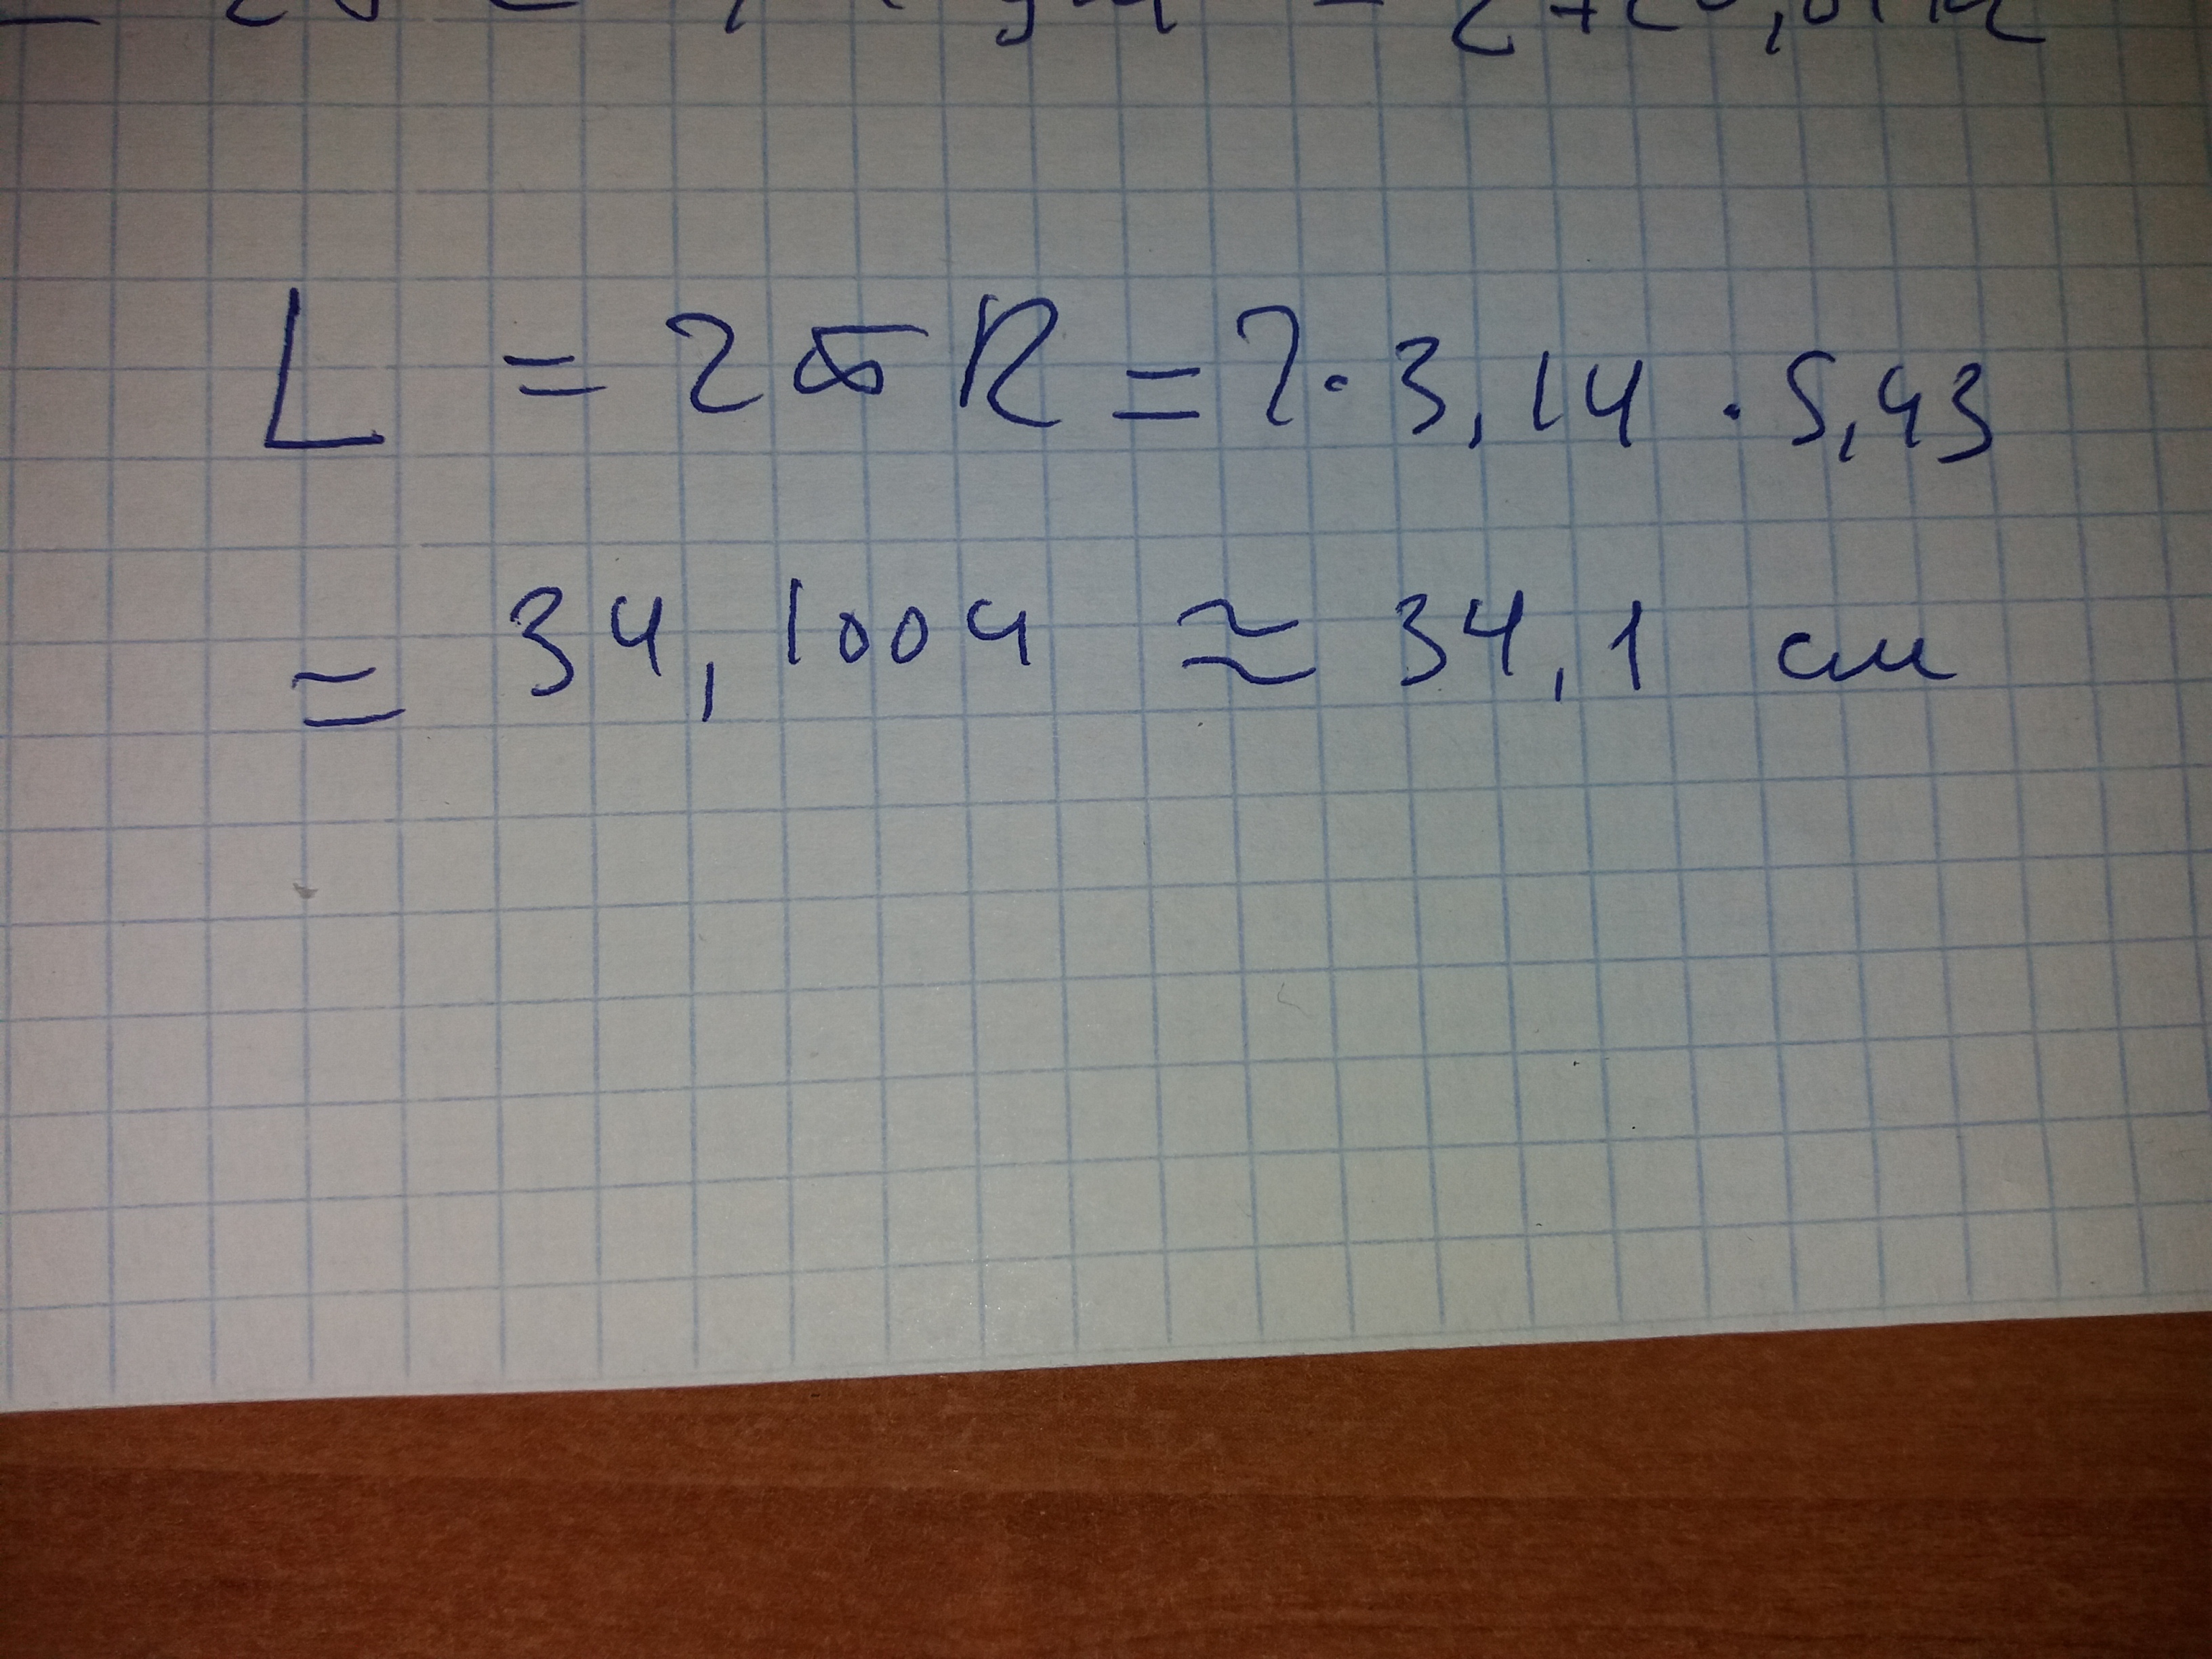 L = 2πR = 2·3,14·5,43
= 34,1004 ≈ 34,1 см